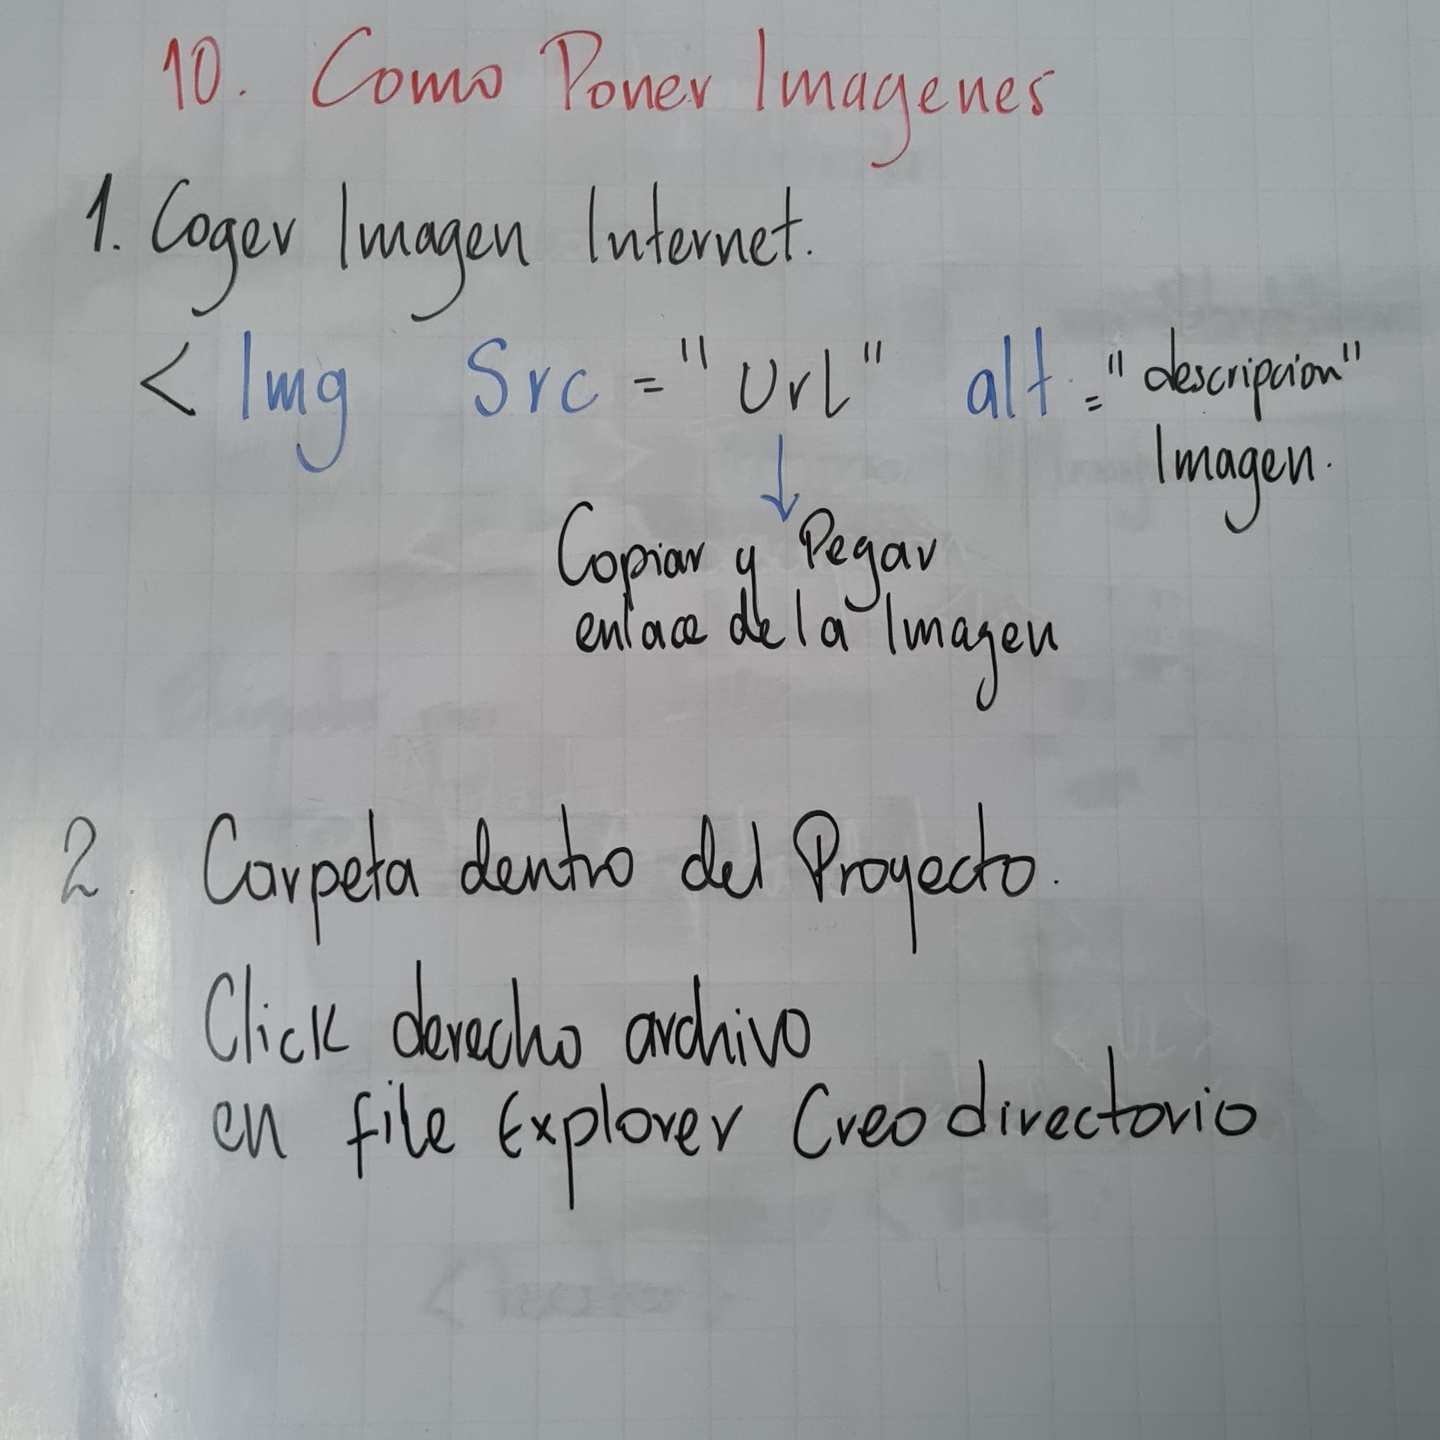 10. Como Poner Imagenes
1. Coger Imagen Internet.
< Img Src = "Url" alt = "descripcion"
Imagen.
Copiar y Pegar
enlace de la Imagen
2. Carpeta dentro del Proyecto.
Click derecho archivo
en file Explorer Creo directorio